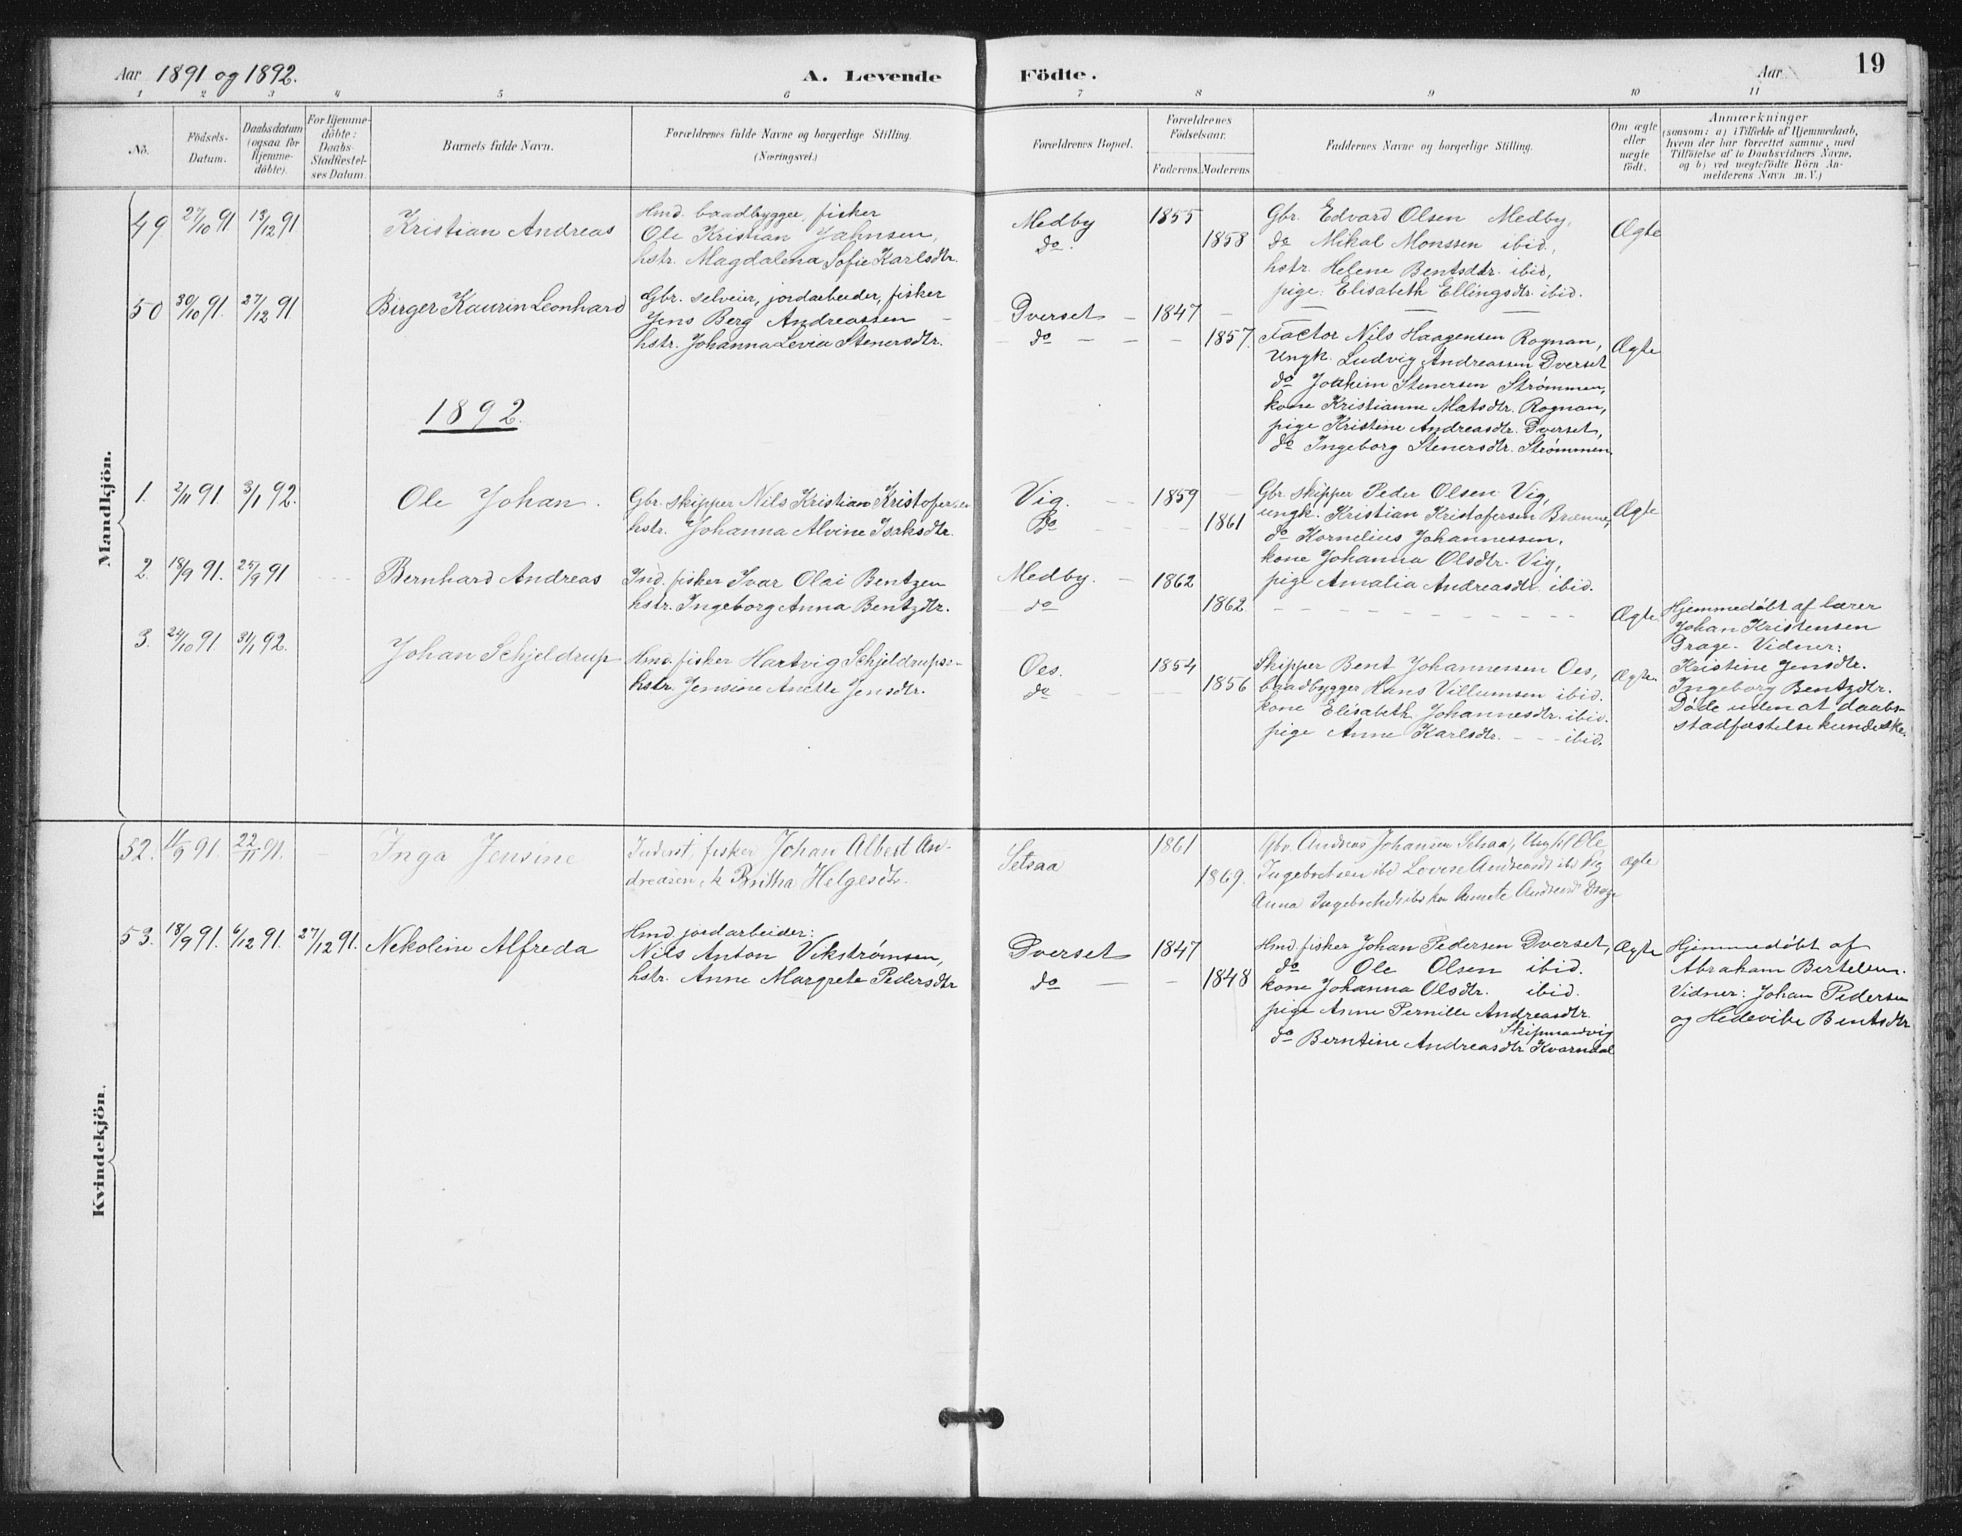 Aar 1891 og 1892.
A. Levende Födte.
Aar
19
1 2 3 4 5 6 7 8 9 10 11
Nô.
Födsels-Datum.
Daabsdatum (ogsaa for Hjemme-döbte).
For Hjemme-döbte: Daabs-Stadfæstel-ses Datum.
Barnets fulde Navn.
Forældrenes fulde Navne og borgerlige Stilling.
(Næringsvei.)
Forældrenes Bopæl.
Forældrenes Födselsaar.
Faderens. Moderens
Faddernes Navne og borgerlige Stilling.
Om ægte eller uægte födt.
Anmærkninger
(saasom: a) i Tilfælde af Hjemmedaab,
hvem der har forrettet samme, med
Tilföielse af to Daabsvidners Navne,
og b) ved uægtefödte Börn An-
melderens Navn m. V.)
Mandkjön.
49 27/10 91 13/12 91 Kristian Andreas
Hmd. baadbygger, fisker
Ole Kristian Jahnsen,
hstr. Magdalena Sofie Karlsdtr.
Medby
do.
1855
1858
Gbr. Edvard Olsen Medby,
do Mikal Monssen ibid,
hstr. Helene Bentsdtr. ibid,
pige. Elisabeth Ellingsdtr. ibid.
Ægte
50 30/10 91. 27/12 91 Birger Kaurin Leonhard
Gbr. selveier, jordarbeider, fisker
Jens Berg Andreassen
hstr. Johanna Levia Stenersdtr.
Dverset
do
1847
1857.
Factor Nils Haagensen Rognan,
Ungk. Ludvig Andreassen Dverset
do Joakim Stenersen Strømmen,
kone Kristianne Matsdtr. Rognan,
pige Kristine Andreasdtr. Dverset,
do Ingeborg Stenersdtr. Strømmen.
Ægte
1892.
1. 2/11 91. 3/1 92. Ole Johan.
Gbr. skipper Nils Kristian Kristofersen
hstr. Johanna Alvine Isaksdtr.
Vig.
Do
1859
1861
Gbr. skipper Peder Olsen Vig,
ungk. Kristian Kristofersen Brænne,
do Kornelius Johannessen,
kone Johanna Olsdtr. Vig,
pige Amalia Andreasdtr. ibid.
Ægte
2. 18/9 91. 25/9 91 Bernhard Andreas
Ind. fisker Ivar Olai Bentzen
hstr. Ingeborg Anna Bentzdtr.
Medby.
do
1862
1862.
Ægte.
Hjemmedøbt af lærer
Johan Kristensen
Drage. Vidner:
Kristine Jensdtr.
Ingeborg Bentzdtr.
Døde uden at daabs-
stadfæstelse kunde ske.
3. 24/10 91. 31/1 92. Johan Schjeldrup
Hmd. fisker Hartvig Schjeldrups.-
hstr. Jensine Anette Jensdtr.
Oes.
do
1854
1856
Skipper Bent Johannessen Oes,
baadbygger Hans Villumsen ibid.
kone Elisabeth Johannesdtr. ibid.
pige Anne Karlsdtr. ibid.
Ægte.
Kvindekjön.
52. 11/9 91. 22/11 91. Inga Jensine
Inderst, fisker Johan Albert An-
dreasen, h Britha Helgesdt.
Setsaa
1861
1869.
Gbr. Andreas Johansen Setsaa, Ungk Ole
Ingebretsen ibd Lovise Andreasdt ibd Pig
Anna Ingebretsdt ibd kon Annete Andreasdt Drage
ægte
53. 18/9 91. 6/12 91. 27/12 91. Nekoline Alfreda
Hmd. jordarbeider:
Nils Anton Vikstrømsen,
hstr. Anne Margrete Pedersdtr
Dverset
do
1847
1848
Hmd. fisker Johan Pedersen Dverset,
do Ole Olsen ibid.
kone Johanna Olsdtr. ibid.
pige Anne Pernille Andreasdtr.
Skipmandvig
do Berntine Andreasdtr Kvarndal
Ægte
Hjemmedøbt af
Abraham Bertelsen.
Vidner: Johan Pedersen
og Hedevibe Bentsdtr